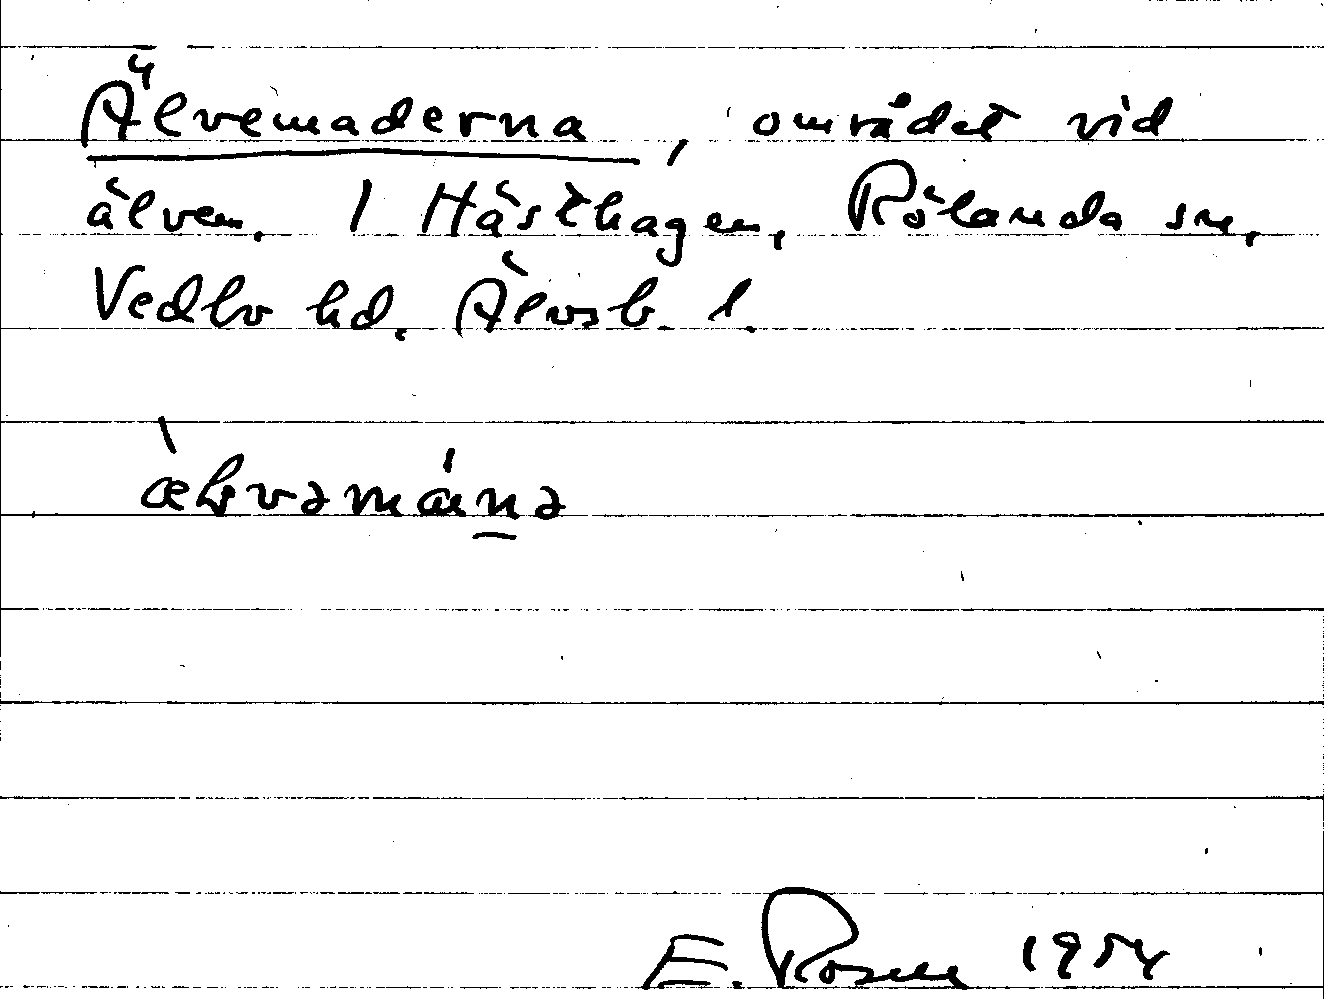 Älvemaderna, området vid
älven. 1 Hästhagen, Rölanda sn,
Vedbo hd. Älvsb. l.
E. Rosell 1954